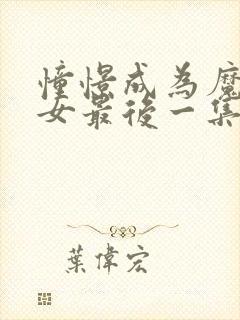 憧憬成為魔
女最後一集
葉偉宏